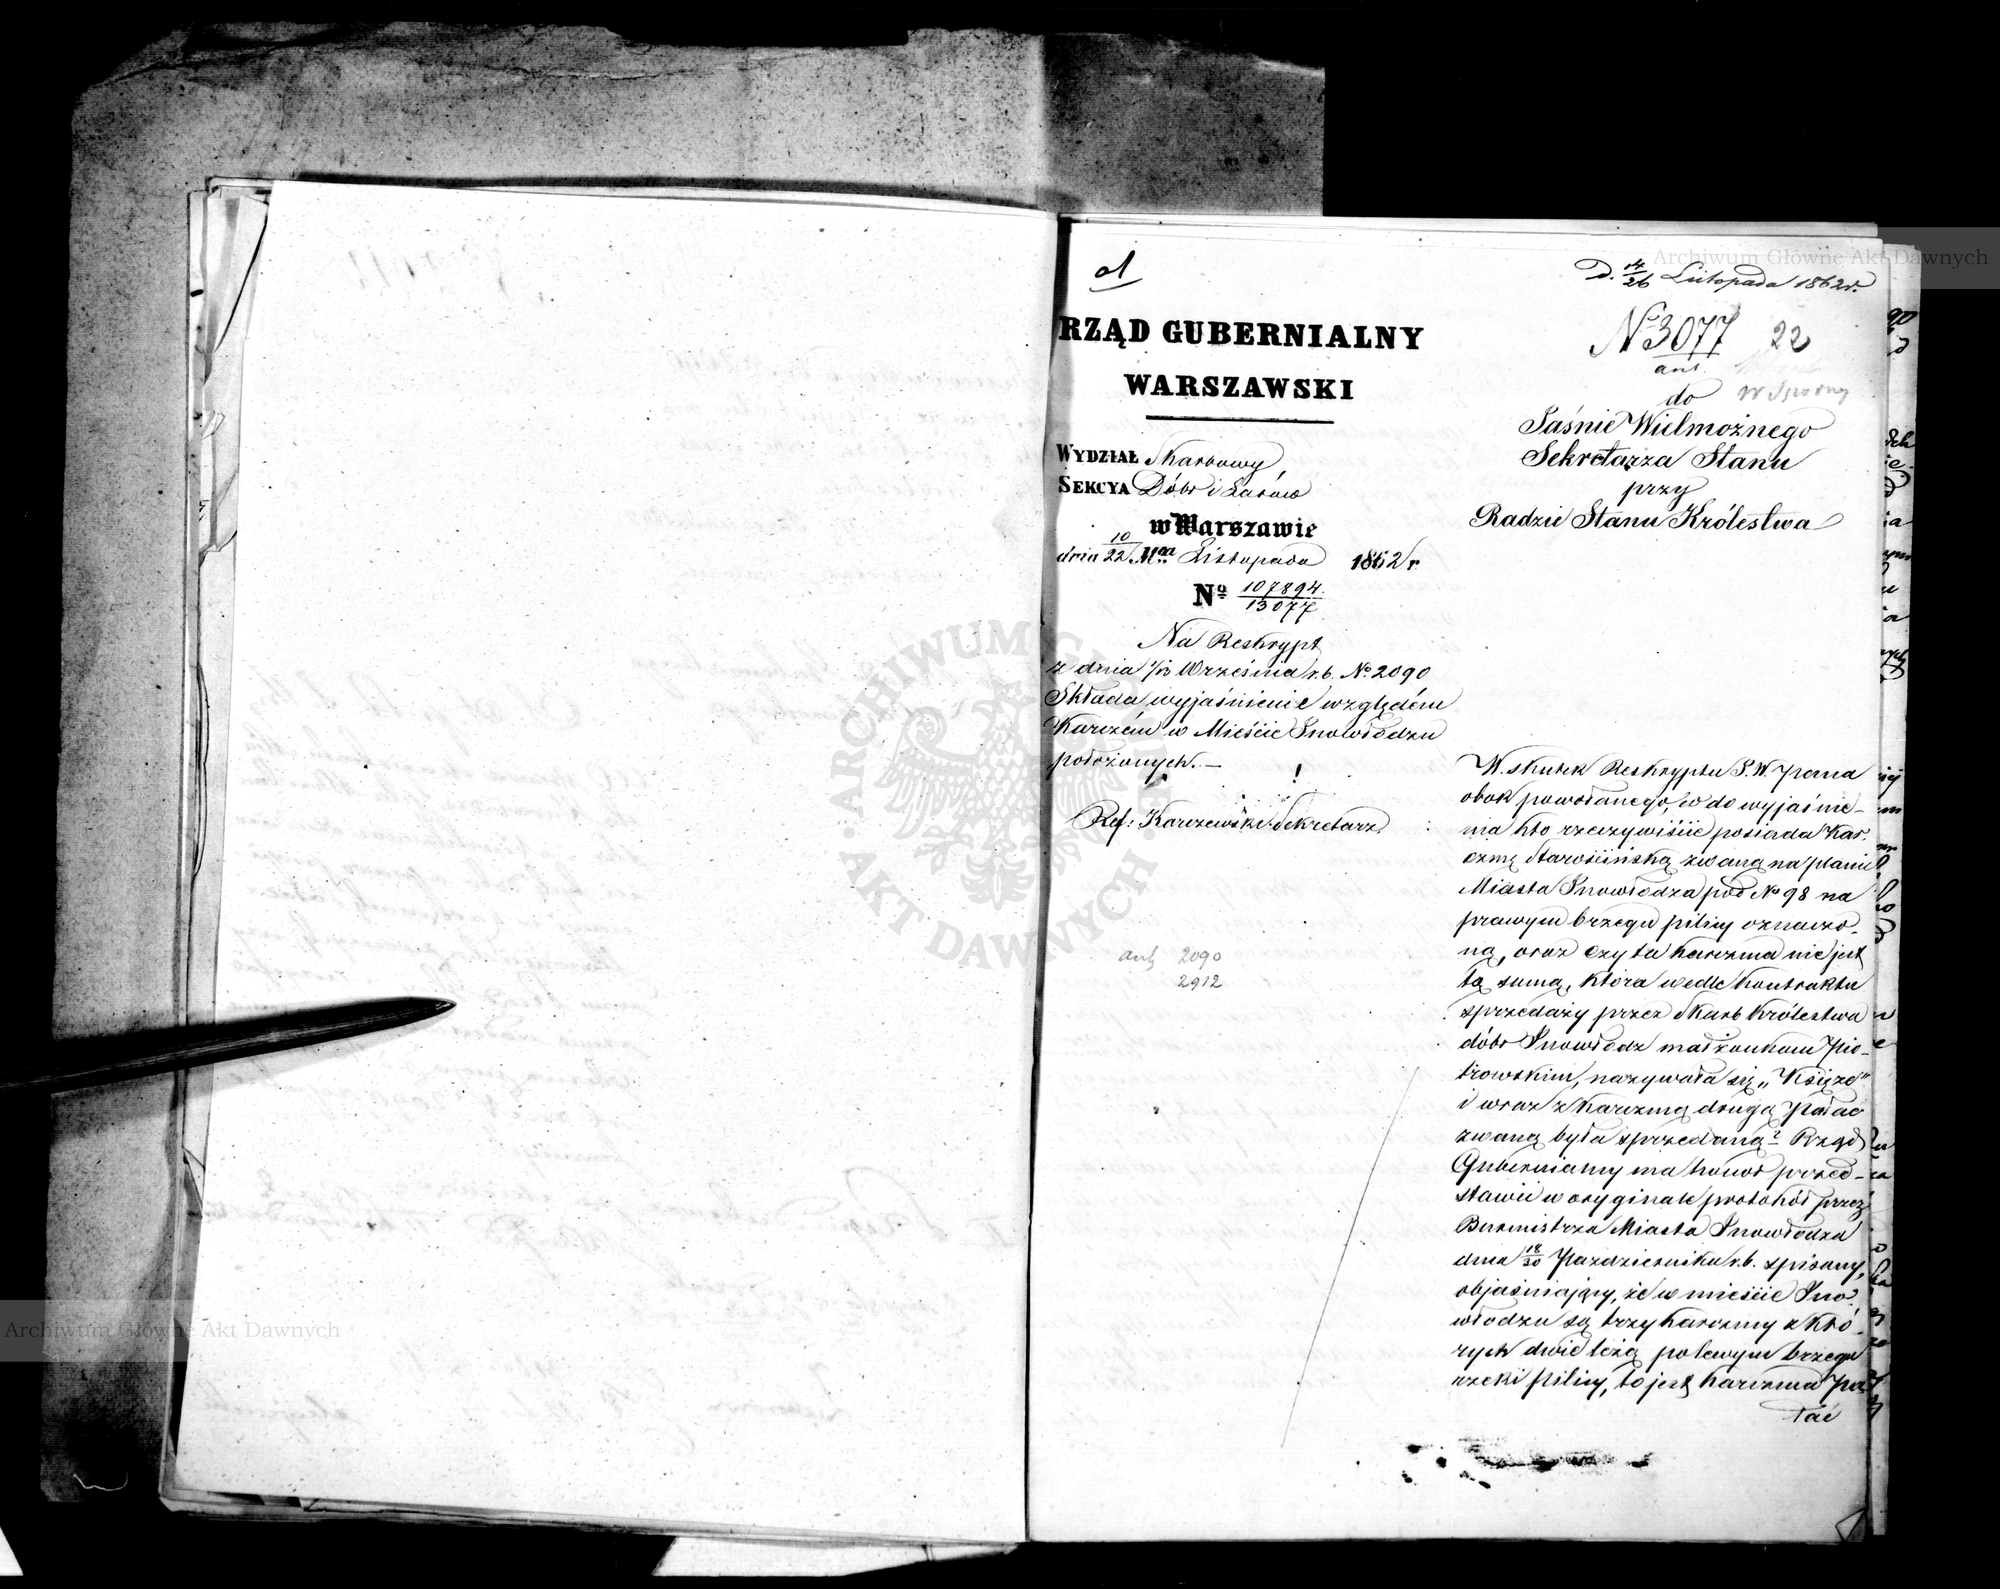 D. 14/26 Listopada 1862 r.
№ 3077 22
ant.
RZĄD GUBERNIALNY
WARSZAWSKI
WYDZIAŁ Skarbowy
SEKCYA Dóbr i Lasów
w Warszawie
dnia 10/22 Mca Listopada 1862 r
№ 107894/13077
Na Reskrypt
z dnia Września r.b. № 2090
Składa wyjaśnienie względem
Karczem w Mieście Inowłodzu
położonych. —
Ref: Karczewski Sekretarz.
2090
2912
do
Jaśnie Wielmożnego
Sekretarza Stanu
przy
Radzie Stanu Królestwa
W skutek Reskryptu J.W. Pana
obok powołanego, co do wyjaśnie-
nia kto rzeczywiście posiada Kar-
czmę Starościńską zwaną na planie
Miasta Inowłodza pod № 98 na
prawym brzegu pilicy oznaczo-
ną, oraz czy ta karczma nie jest
tą samą, która wedle kontraktu
sprzedaży przez Skarb Królestwa
dóbr Inowłodz małżonkom Pio-
trowskim, nazywała się „Książe"
i wraz z karczmą drugą Pałac
zwaną była sprzedaną? Rząd
Gubernialny ma honor przed-
stawić w oryginale protokół przez
Burmistrza Miasta Inowłodza
dnia 18/30 Października r.b. spisany,
objaśniający, że w mieście Ino-
włodzu są trzy karczmy z któ-
rych dwie leżą po lewym brzegu
rzeki Pilicy, to jest karczma Pa
łać
Archiwum Główne Akt Dawnych
ARCHIWUM GŁÓWNE AKT DAWNYCH
Archiwum Główne Akt Dawnych